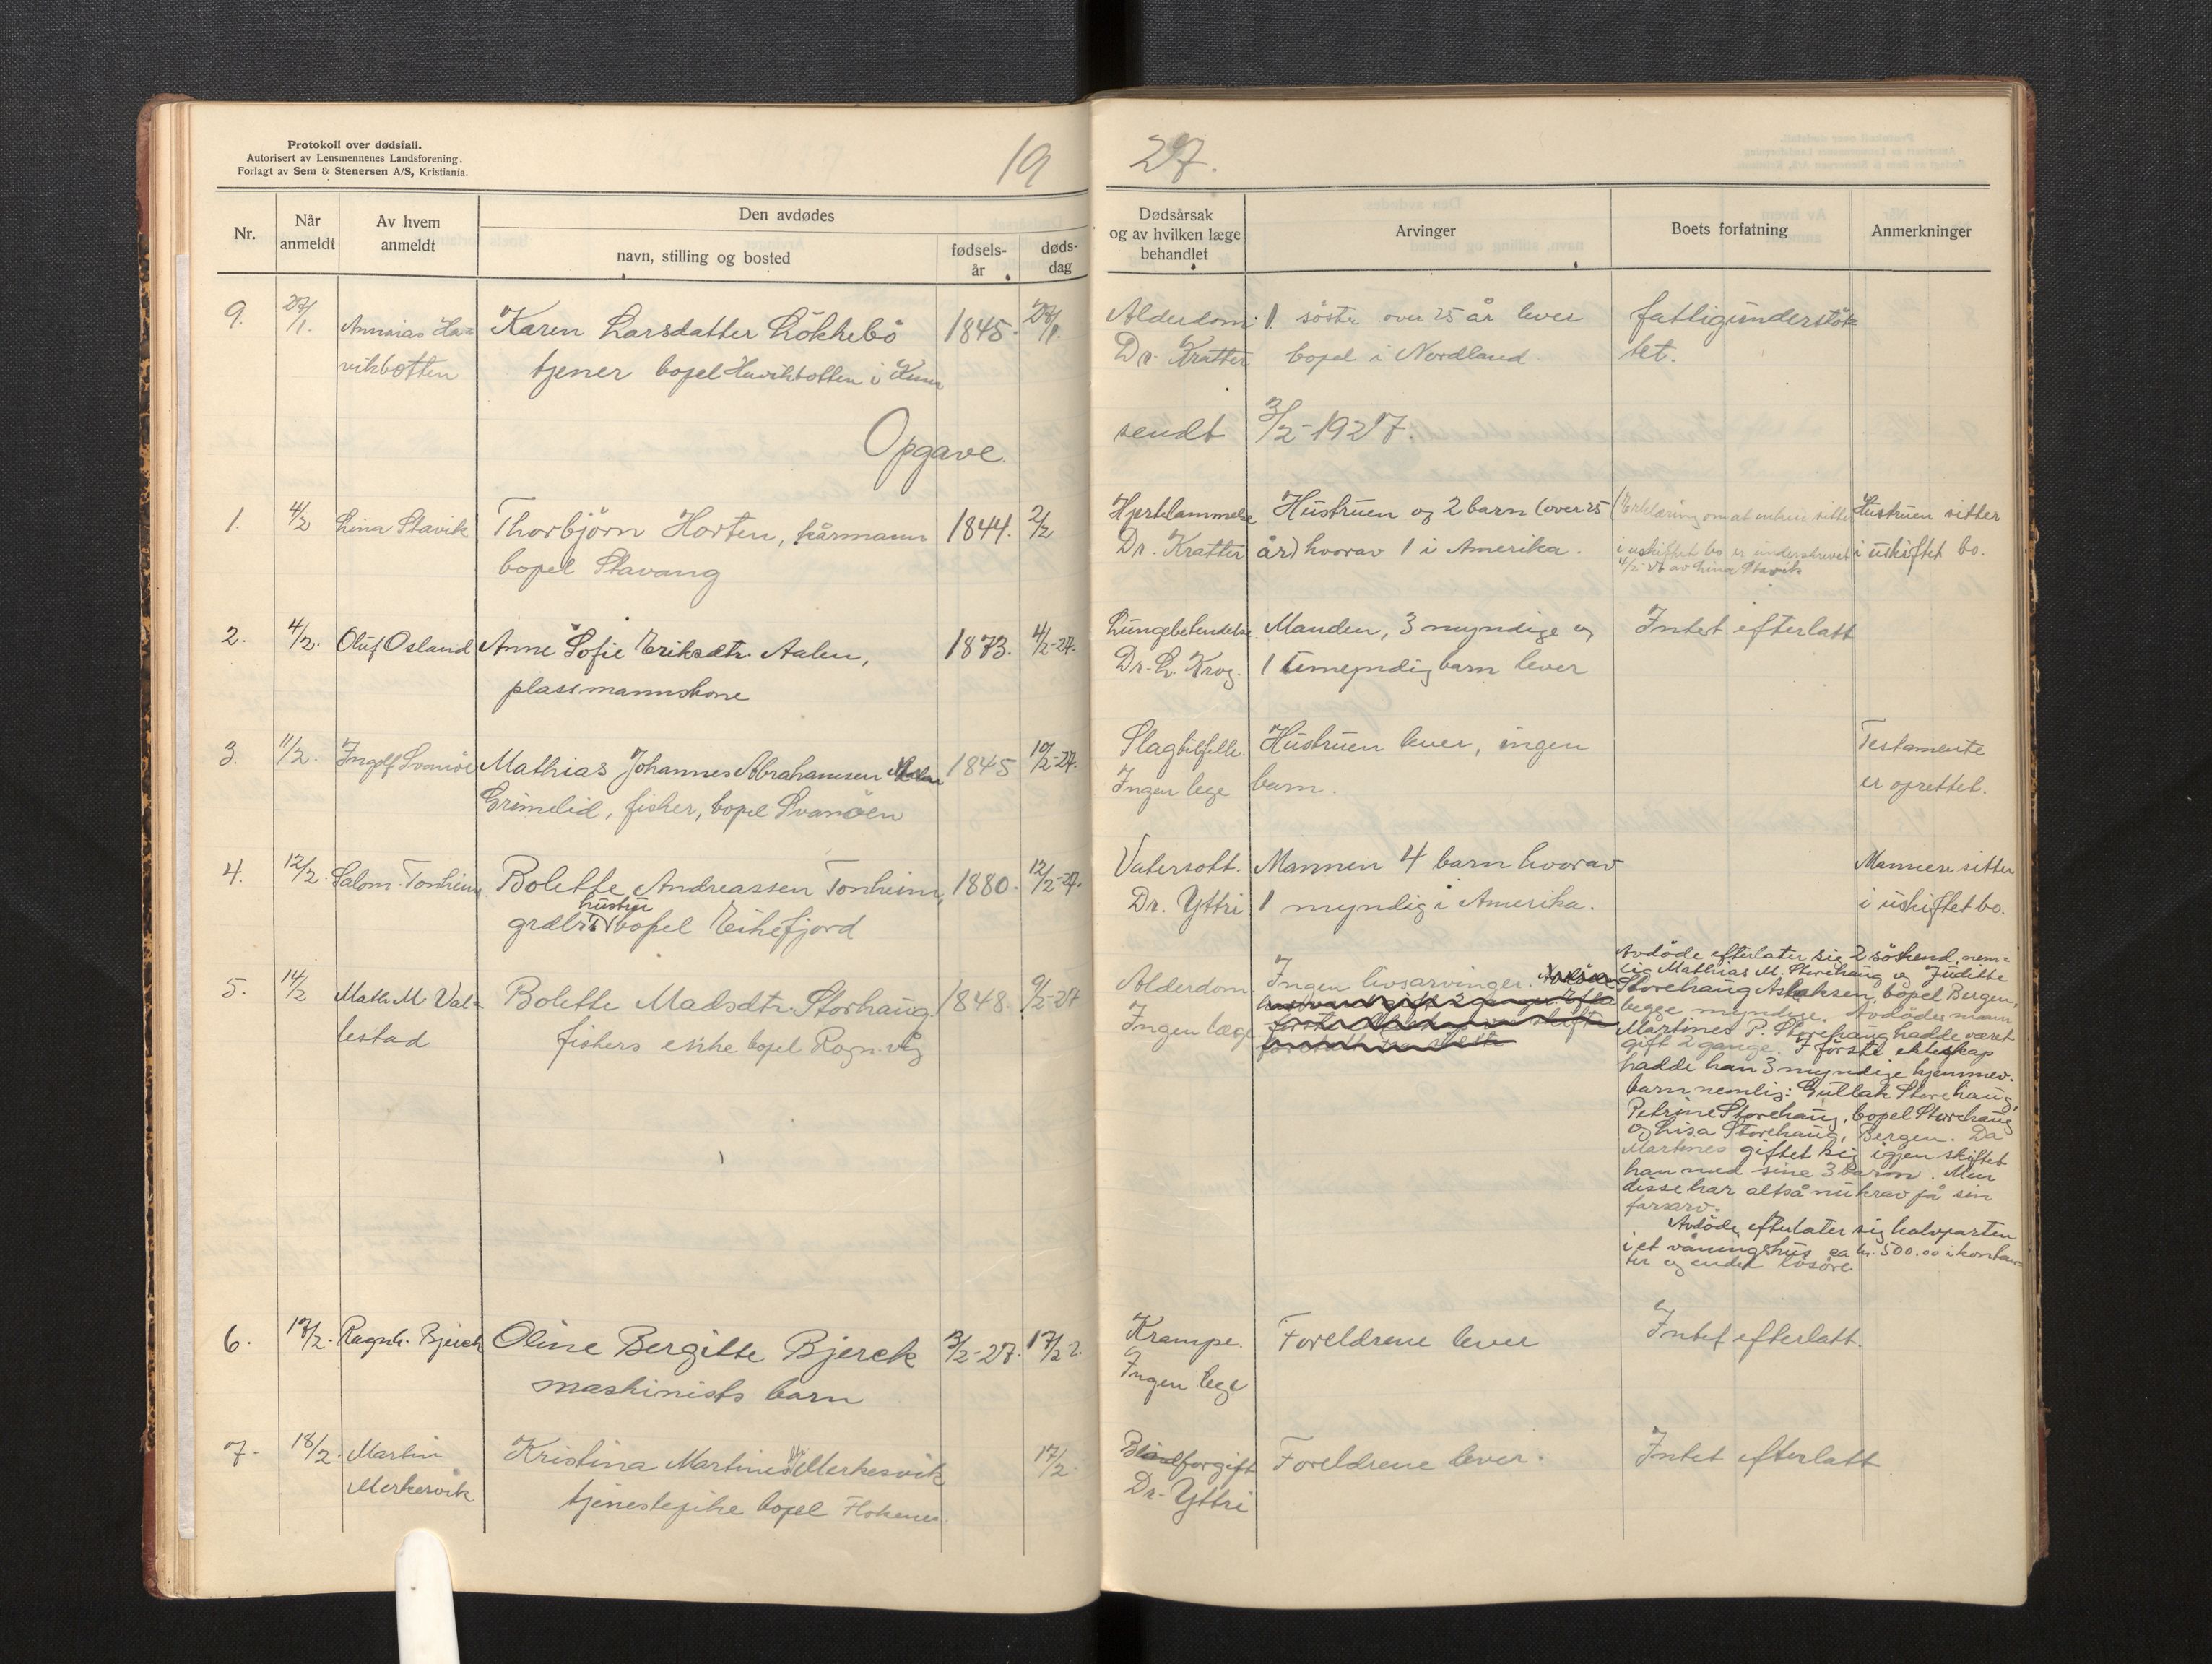 Protokoll over dødsfall.
Autorisert av Lensmennenes Landsforening.
Forlagt av Sem & Stenersen A/S, Kristiania.
19 27.
Nr.
Når anmeldt
Av hvem anmeldt
Den avdødes
navn, stilling og bosted
fødsels-år
døds-dag
Dødsårsak og av hvilken læge behandlet
Arvinger
Boets forfatning
Anmerkninger
9. 27/1. Karen Larsdatter Løkkebø 1845. 27/1. Alderdom. 1 søster over 25 år lever fattigunderstøt
vikbotten tjener bopel Havikbotten i Kinn Dr. Kratter bopel i Nordland tet.
Opgave sendt 3/2-1927.
1. 4/2 Lina Stavik Thorbjörn Horten, kårmann 1844. 2/2 Hjertelammelse Hustruen og 2 barn (over 25 Erklæring om at enken sitter Hustruen sitter
bopel Stavang Dr. Kratter år) hvorav 1 i Amerika. i uskiftet bo er underskrevet i uskiftet bo.
4/2-27 av Lina Stavik
2. 4/2. Oluf Osland Anne Sofie Eriksdtr. Aalen, 1873. 4/2-27. Lungebetendelse Manden, 3 myndige og Intet efterlatt
plassmannskone Dr. L. Krog. 1 umyndig barn lever
3. 11/2. Ingolf Svanøe Mathias Johannes Abrahamsen 1845 10/2-27. Slagtilfelle. Hustruen lever, ingen Testamente
Grimelid, fisker, bopel Svanöen Ingen lege barn. er oprettet.
4. 12/2. Salom. Tonheim Bolette Andreassen Tonheim, 1880. 12/2-27. Vatersott. Mannen 4 barn hvorav Mannen sitter
hustru
bopel Eikefjord Dr. Yttri 1 myndig i Amerika. i uskiftet bo.
5. 14/2 Math. M. Val= Bolette Madsdtr. Storhaug 1848. 9/2-27 Alderdom Ingen livsarvinger.
lestad fiskers enke bopel Rognvåg Ingen læge
Avdöde efterlater sig 2 söskend, nem=
lig Mathias M. Storehaug og Juditte
Storehaug Aslaksen, bopel Bergen,
begge myndige. Avdödes mann
Martines P. Storehaug hadde været
gift 2 gange. I förste ekteskap
hadde han 3 myndige hjemmev.
barn nemlig: Gullak Storehaug,
Petrine Storehaug, bopel Storehaug
og Lisa Storehaug, Bergen. Da
Martines giftet sig igjen skiftet
han med sine 3 barn. Men
disse har altså nu krav på sin
farsarv.
Avdöde efterlater sig halvparten
i et våningshus, ca kr. 500.00 i kontan=
ter og endel lösöre
6. 17/2. Ragnh. Bjerck Oline Bergitte Bjerck 3/2-27. 17/2 Krampe. Foreldrene lever Intet efterlatt.
maskinists barn Ingen lege
7. 18/2. Martin Kristina Martines Merkesvik 17/2. Blodforgift Foreldrene lever. Intet efterlatt
Merkesvik tjenestepike bopel Dr. Yttri